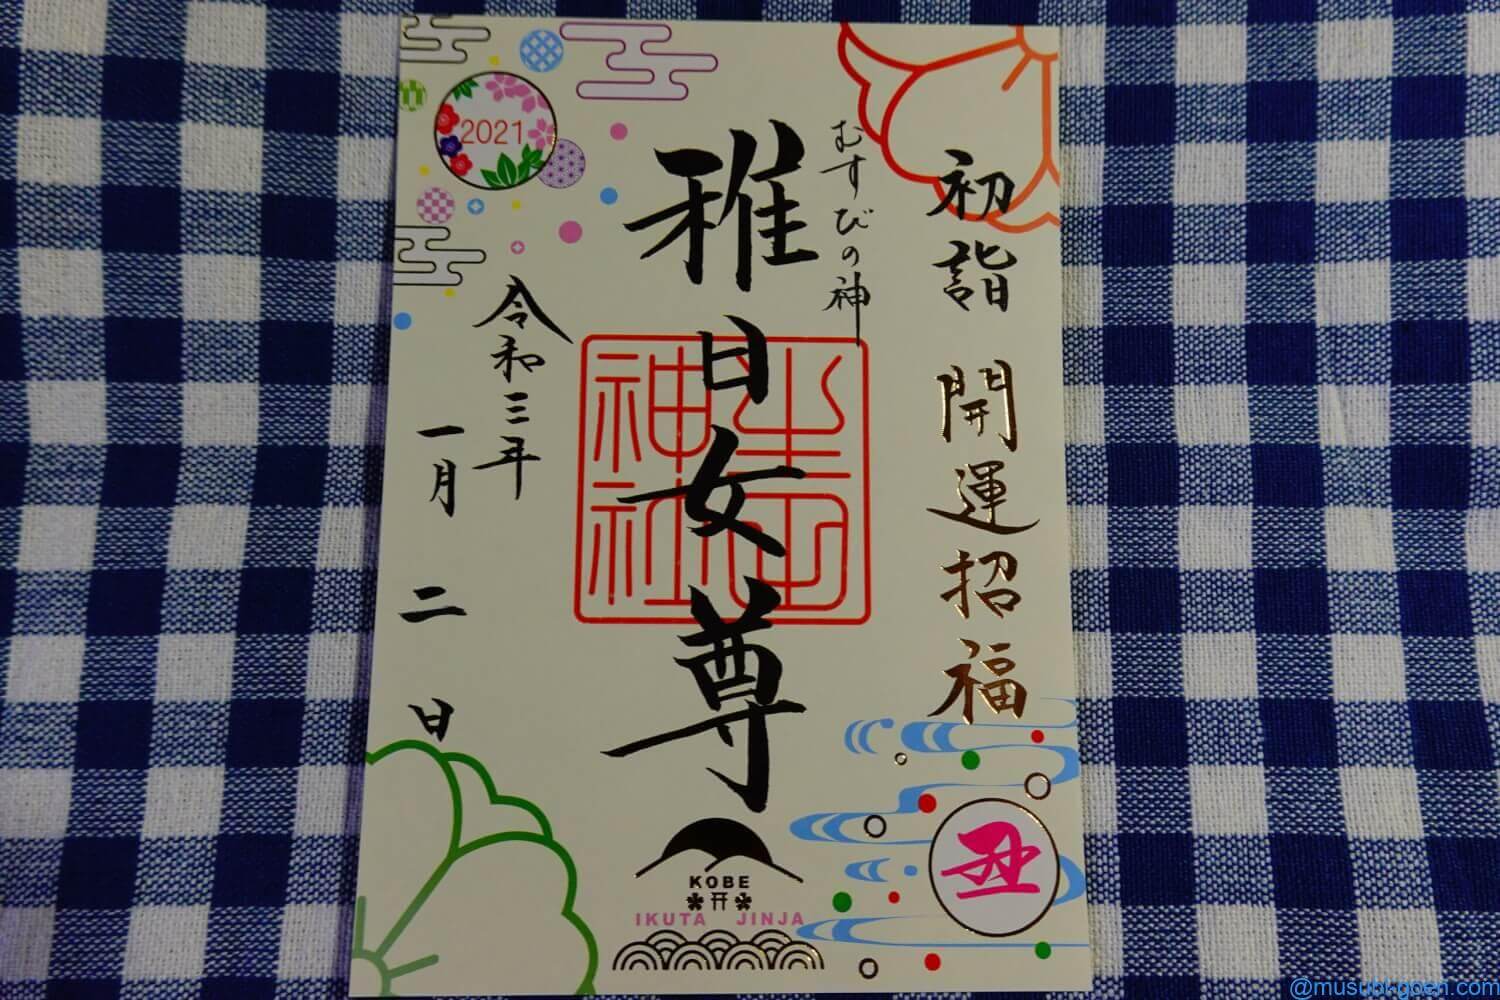 初詣 開運招福
むすびの神
稚日女尊
生田神社
令和三年
一月 二 日
2021
丑
KOBE
IKUTA JINJA
@musubi-goen.com